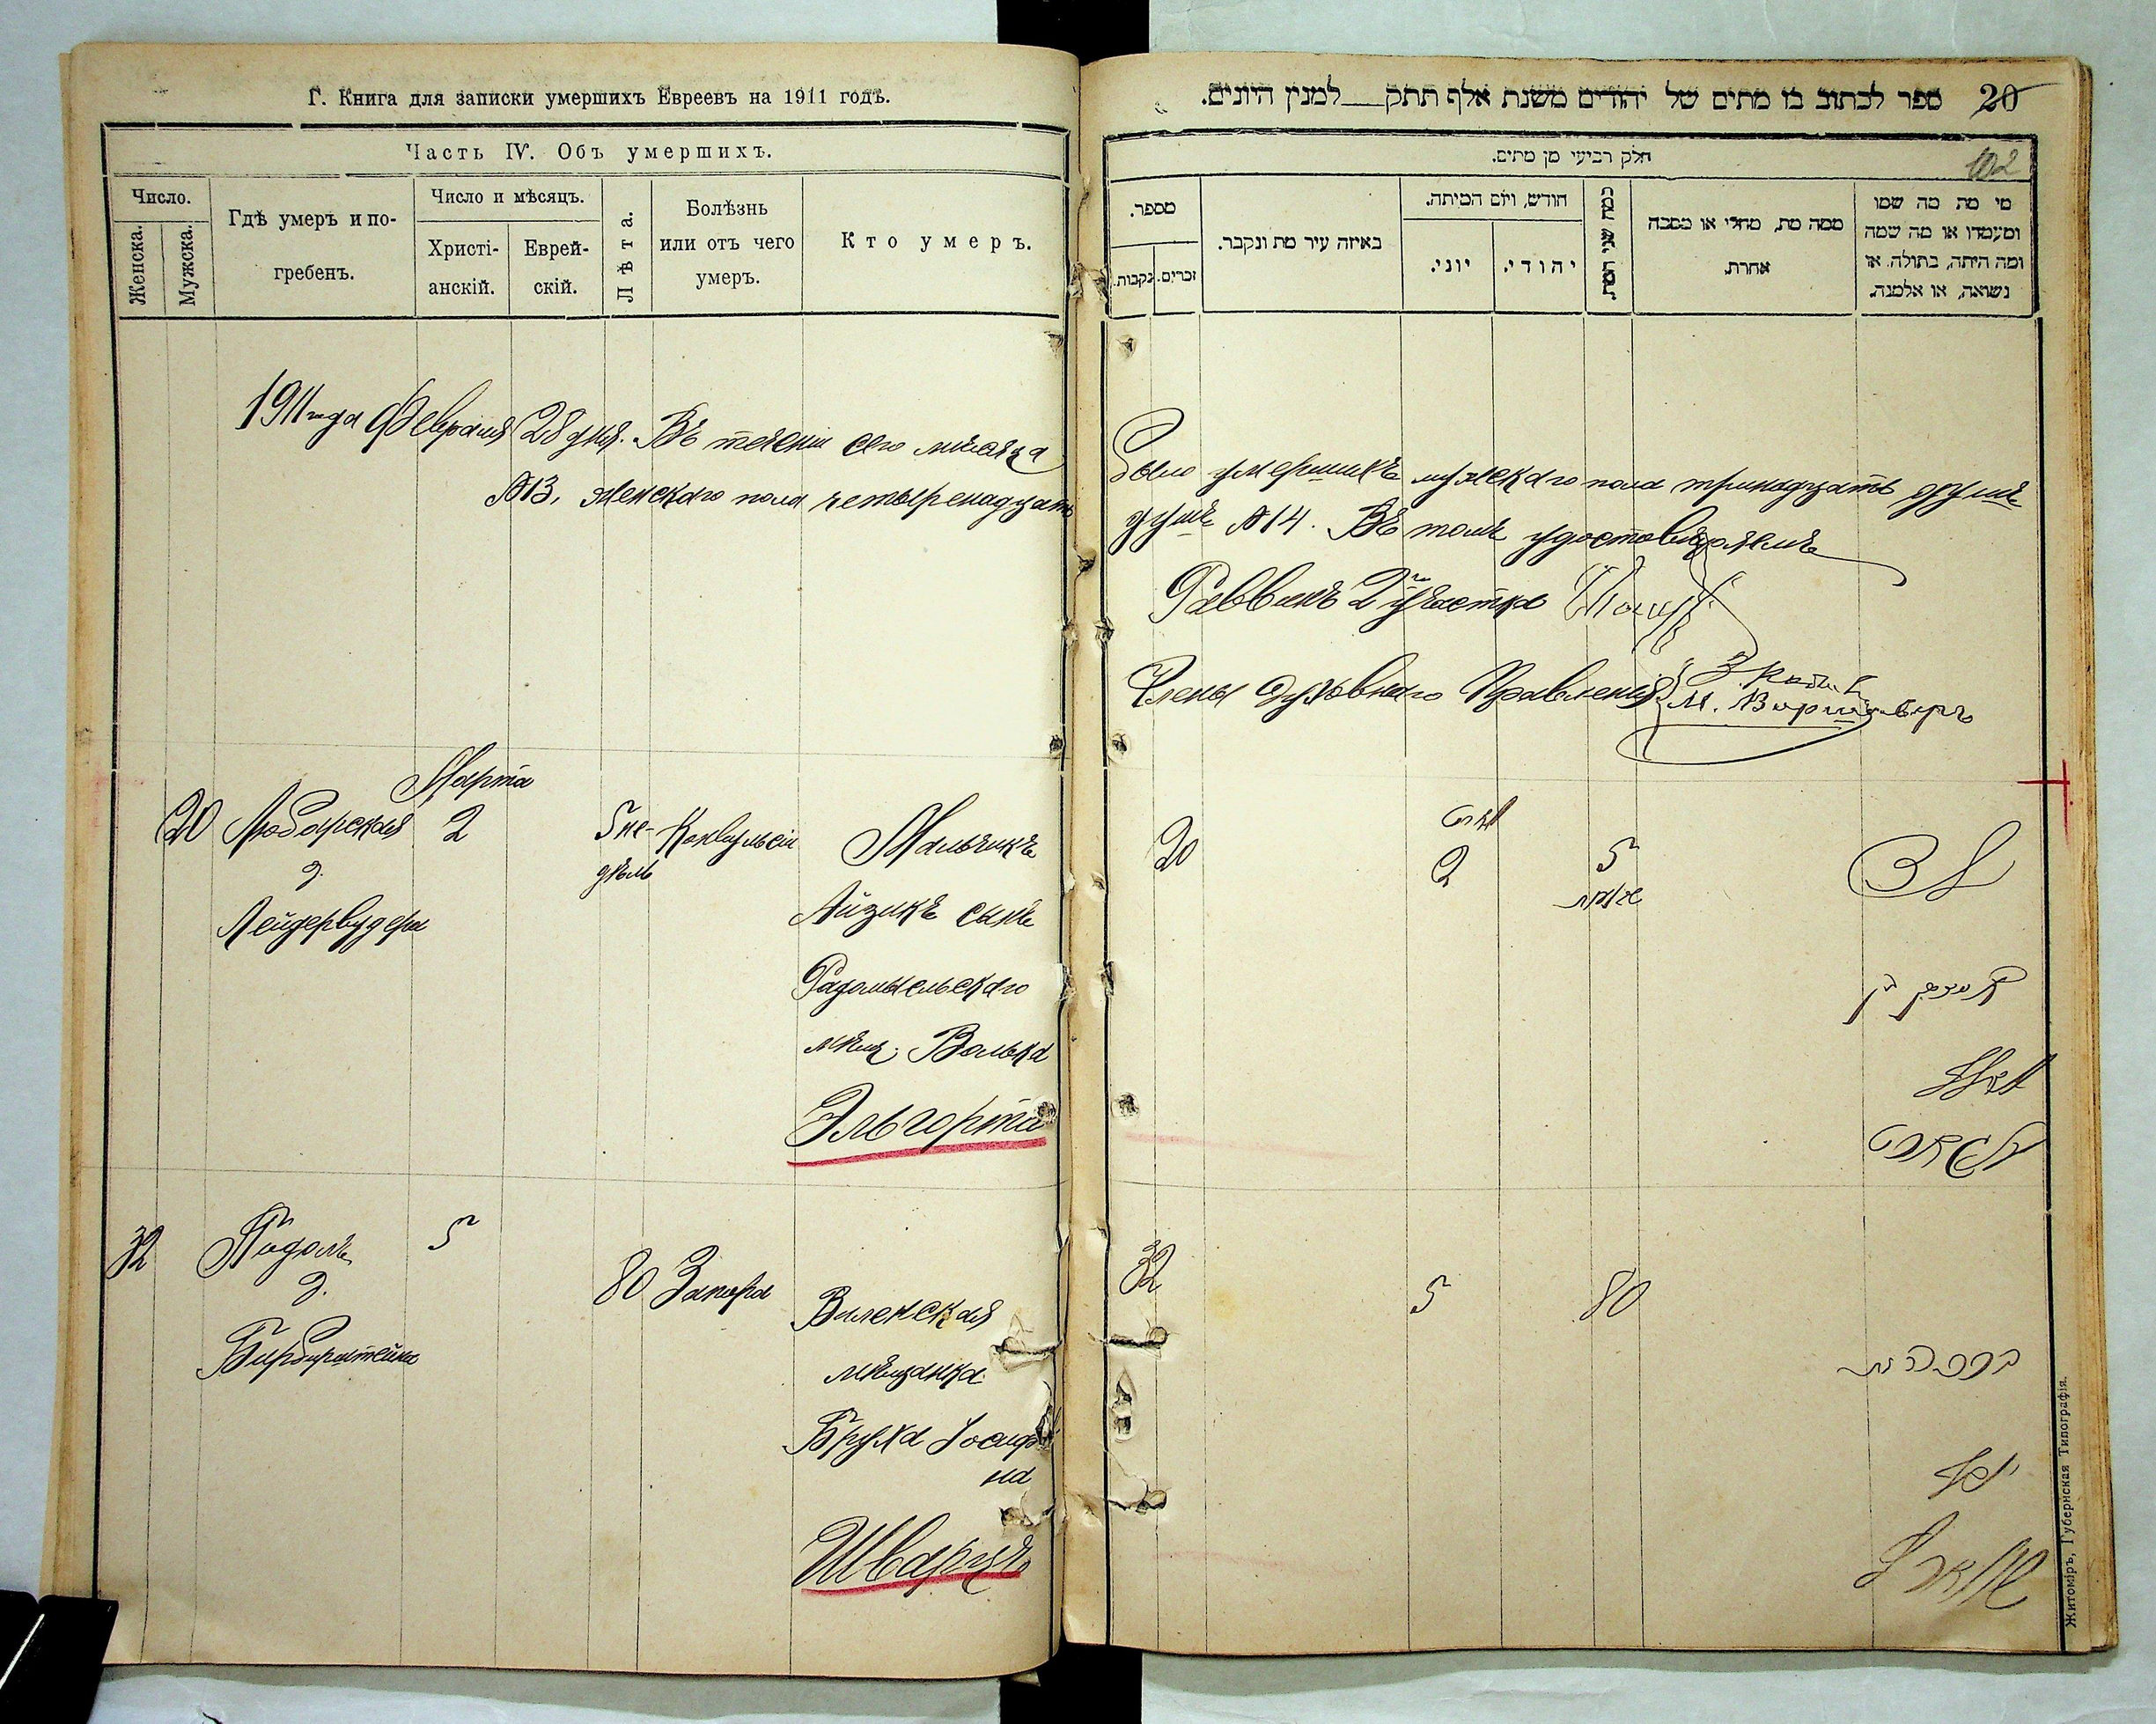 Г. Книга для записки умершихъ Евреевъ на 1911 годъ.
Часть IV. Объ умершихъ.
Число.
Женска.
Мужска.
Гдѣ умеръ и по-
гребенъ.
Число и мѣсяцъ.
Христі-
анскій.
Еврей-
скій.
Лѣта.
Болѣзнь
или отъ чего
умеръ.
Кто умеръ.
1911 года Февраля 28 дня. Въ теченіи сего мѣсяца
№13, женскаго пола четыренадцать
Марта
20 Любарская 2 5 не- Конвульсіи Мальчикъ
д. дѣль
Лейдервудера
Айзикъ сынъ
Радомысльскаго
мѣщ. Волька
Эльгорта
32 Подолъ 5
д.
80 Запора Виленская
мѣщанка
Бруха Іосиф
на
Шварцъ
ספר לכתוב בו מתים של יהודים משנת אלף תתק למנין היונים. 20
חלק רביעי מן מתים.
102
מספר.
נקבות.
זכרים.
באיזה עיר מת ונקבר.
חודש, ויום המיתה.
יוני.
יהודי.
כמה שני המת
ממה מת, מחלי או מסבה
אחרת.
מי מת מה שמו
ומעמדו או מה שמה
ומה היתה, בתולה או
נשואה, או אלמנה.
было умершихъ мужскаго пола тринадцать душъ
душъ №14. Въ томъ удостовѣряемъ
Раввинъ 2го участка
Члены Духовнаго Правленія
20 2 5
32 5 80
Житоміръ, Губернская Типографія.